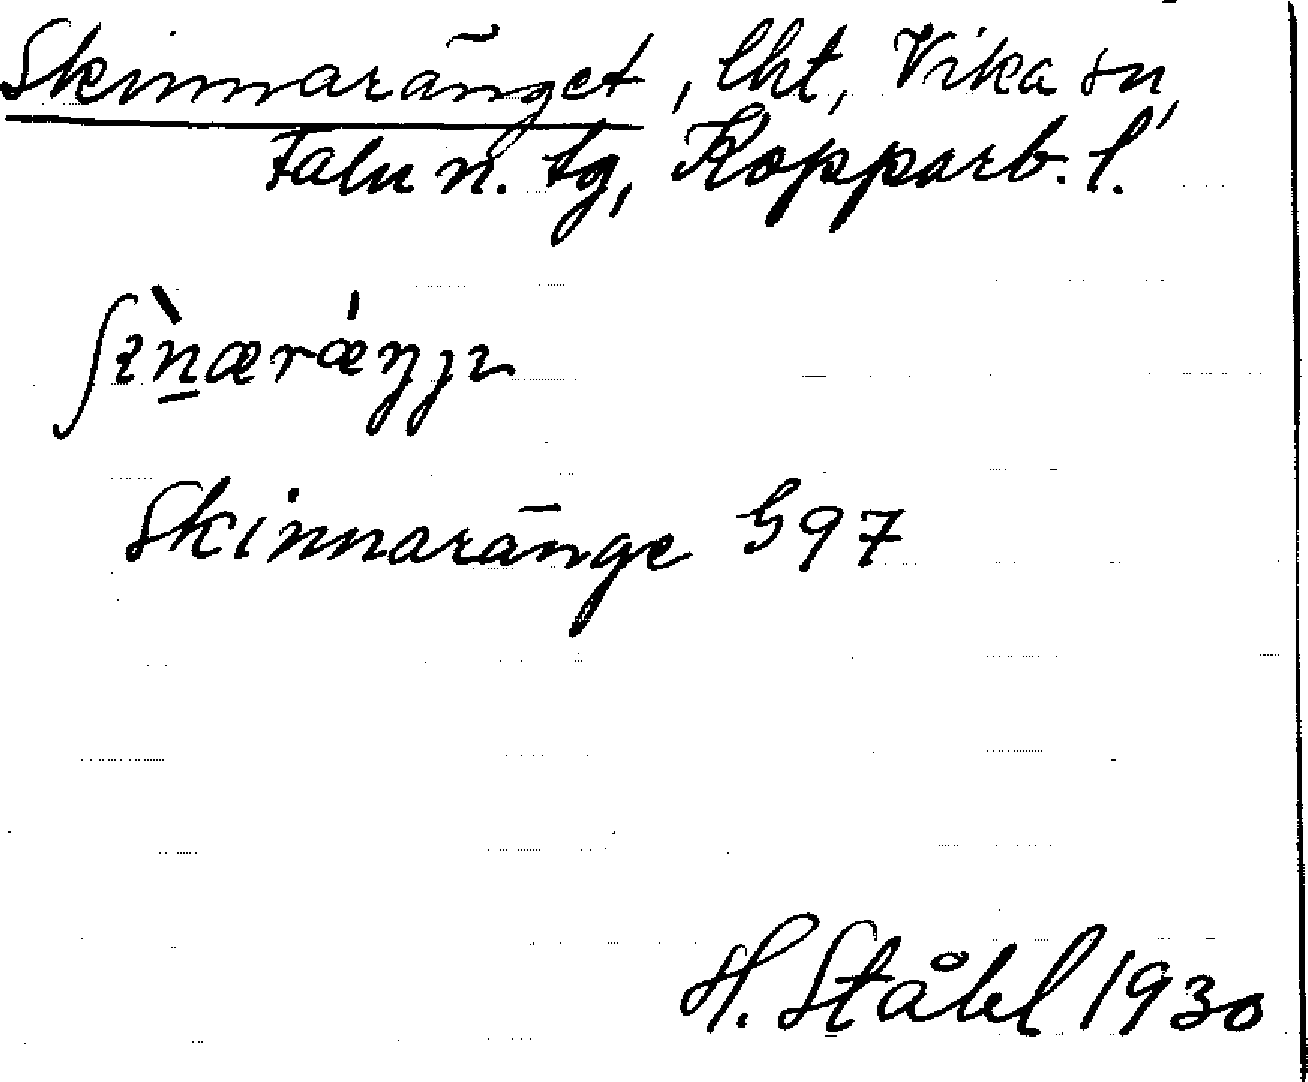 Skinnaränget, lht, Vika sn,
Falu n. tg, Kopparb. l.
Skinnaränge G97
H. Ståhl 1930